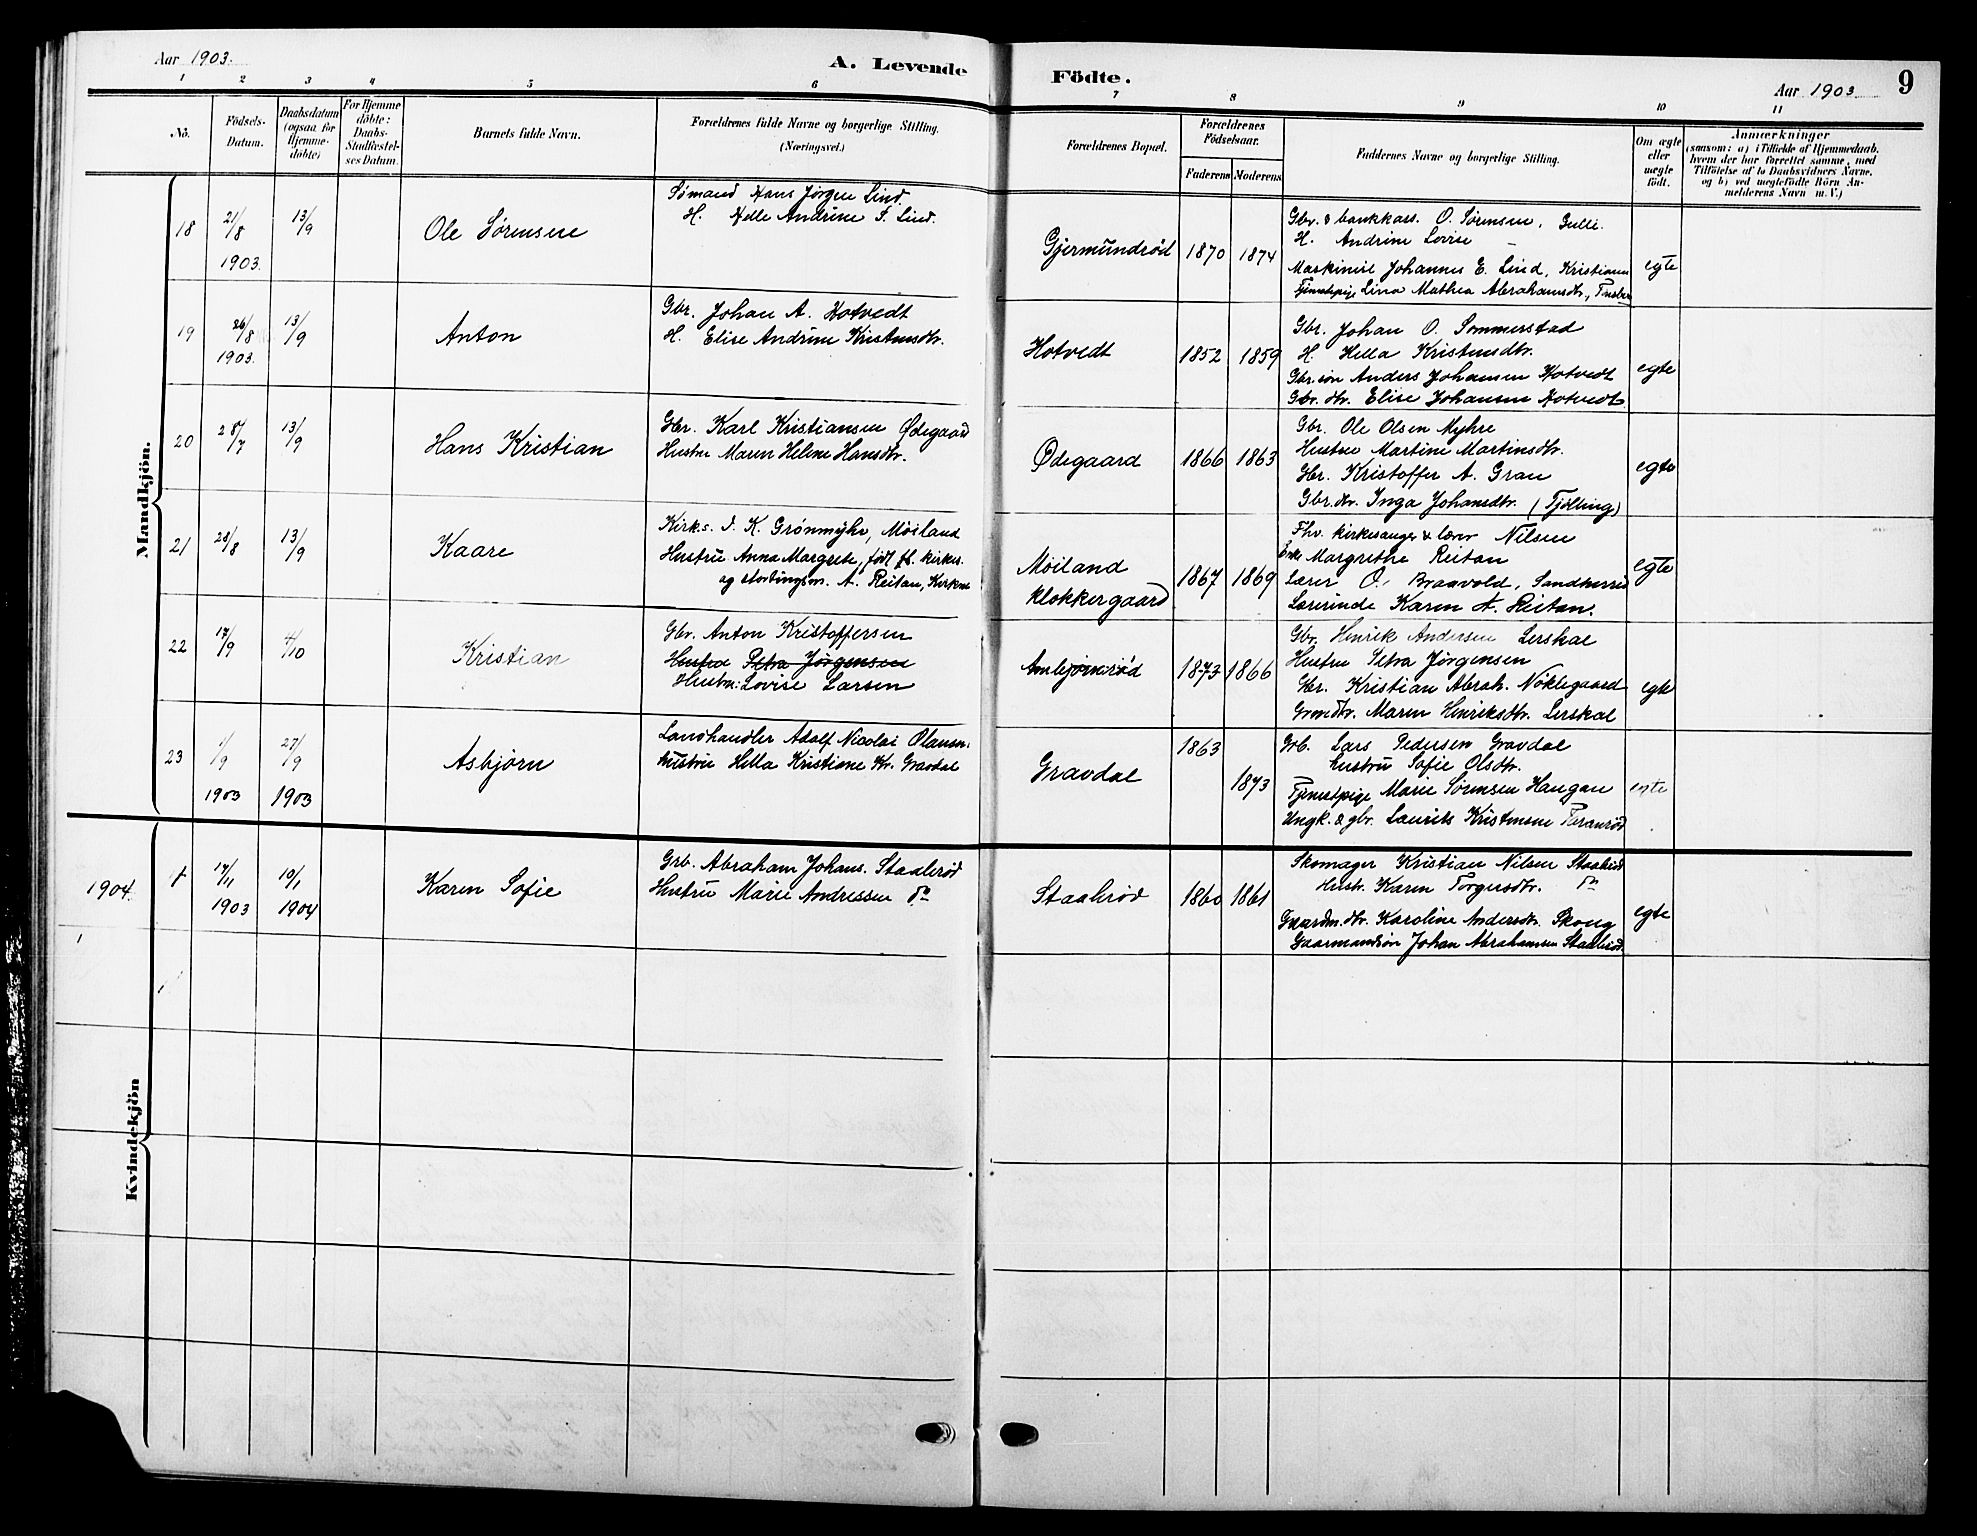 Aar 1903.
A. Levende Födte.
Aar 1903
9
1 2 3 4 5 6 7 8 9 10 11
No.
Födsels-
Datum.
Daabsdatum
(ogsaa for
Hjemme-
döbte)
For Hjemme
döbte:
Daabs-
Stadfæstel-
ses Datum.
Barnets fulde Navn.
Forældrenes fulde Navne og borgerlige Stilling.
(Næringsvei.)
Forældrenes Bopæl.
Forældrenes
Födselsaar.
Faderens Moderens
Faddernes Navne og borgerlige Stilling.
Om ægte
eller
uægte
födt.
Anmærkninger
(saasom: a) i Tilfælde af Hjemmedaab,
hvem der har forrettet samme, med
Tilföielse af to Daabsvidners Navne,
og b) ved uægtefödte Börn An-
melderens Navn m. V.)
Mandkjön.
18
21/8
1903.
13/9
Ole Sørensen
Sømand Hans Jørgen Lind.
H. Helle Andrine S. Lind.
Gjermundrød
1870 1874
Gbr. & bankkass. O. Sørensen, Gulli.
H. Andrine Lovise —
Maskinist Johannes E. Lind, Kristiania
Tjenestepige Lina Mathea Abrahamsdtr.,
egte
19
26/8
1903.
13/9
Anton
Gbr. Johan A. Hotvedt
H. Elise Andrine Kristensdtr.
Hotvedt
1852 1859
Gbr. Johan O. Sommerstad
H. Hella Kristensdtr.
Gbr. søn Anders Johansen Hotvedt
Gbr. dtr. Elise Johansen Hotvedt
egte
20
28/7
13/9
Hans Kristian
Gbr. Karl Kristiansen Ødegaard
Hustru Maren Helene Hansdtr.
Ødegaard
1866 1863
Gbr. Ole Olsen Myhre
Hustru Martine Martinsdtr.
Gbr. Kristoffer A. Grau
Gbr. dtr. Inga Johansdtr. (Tjølling)
egte
21
28/8
13/9
Kaare
Kirks. J. K. Grønmyhr, Møiland
Hustru Anna Margrete, født fh. kirkes.
og stortingsm. A. Reitan,
Møiland
klokkergaard
1867 1869
Fhv. kirkesanger & lærer Nilsen
Enke Margrethe Reitan
Lærer O. Braavold, Sandherred
Lærerinde Karen A. Reitan.
egte
22
17/9
4/10
Kristian
Gbr. Anton Kristoffersen
Hustru Petra Jørgensen
Hustru: Lovise Larsen
Anbjørnrød
1873 1866
Gbr. Henrik Andersen Lerskal
Hustru Petra Jørgensen
Gbr. Kristian Abrah. Nøklegaard
Grmdtr. Maren Henriksdtr. Lerskal
egte
23
1/9
1903
27/9
1903
Asbjørn
Landhandler Adolf Nicolai Olausn.
hustru Hella Kristiane Kr. Gravdal
Gravdal
1863
1873
Grb. Lars Pedersen Gravdal
hustru Sofie Olsdtr.
Tjenestpige Marie Sørensen Haugan
Ungk. & gbr. Laurits Kristensen
egte
Kvindekjön
1904.
1
17/11
1903
10/1
1904
Karen Sofie
Grb. Abraham Johans. Staalerød
Hustru Marie Andressen do
Staalerød
1860 1861
Skomager Kristian Nilsen Staalerød
Hustr. Karen Torgersdtr. do
Gaardm. dtr. Karoline Andersdtr. Skoug
Gaarmandsøn Johan Abrahamsen Staalerød.
egte